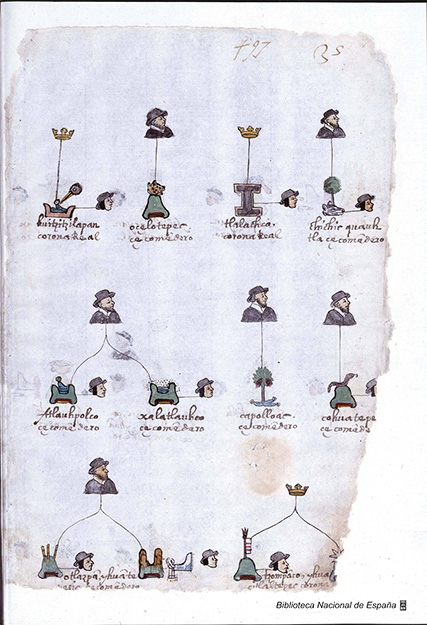 497
35
huitzitzilapan
corona Real
ocelotepec
ẽcomẽdero
tlalachco
corona Real
chichicquauh
tla ẽcomẽdero
Atlauhpolco
ẽcomẽdero
xalatlauhco
ẽcomẽdero
capolloac
ẽcomẽdero
cohuatepe
ẽcomẽde
otlazpa, yhuã te
ẽcomẽdero
tzompaco, yhuã
corona
Biblioteca Nacional de España